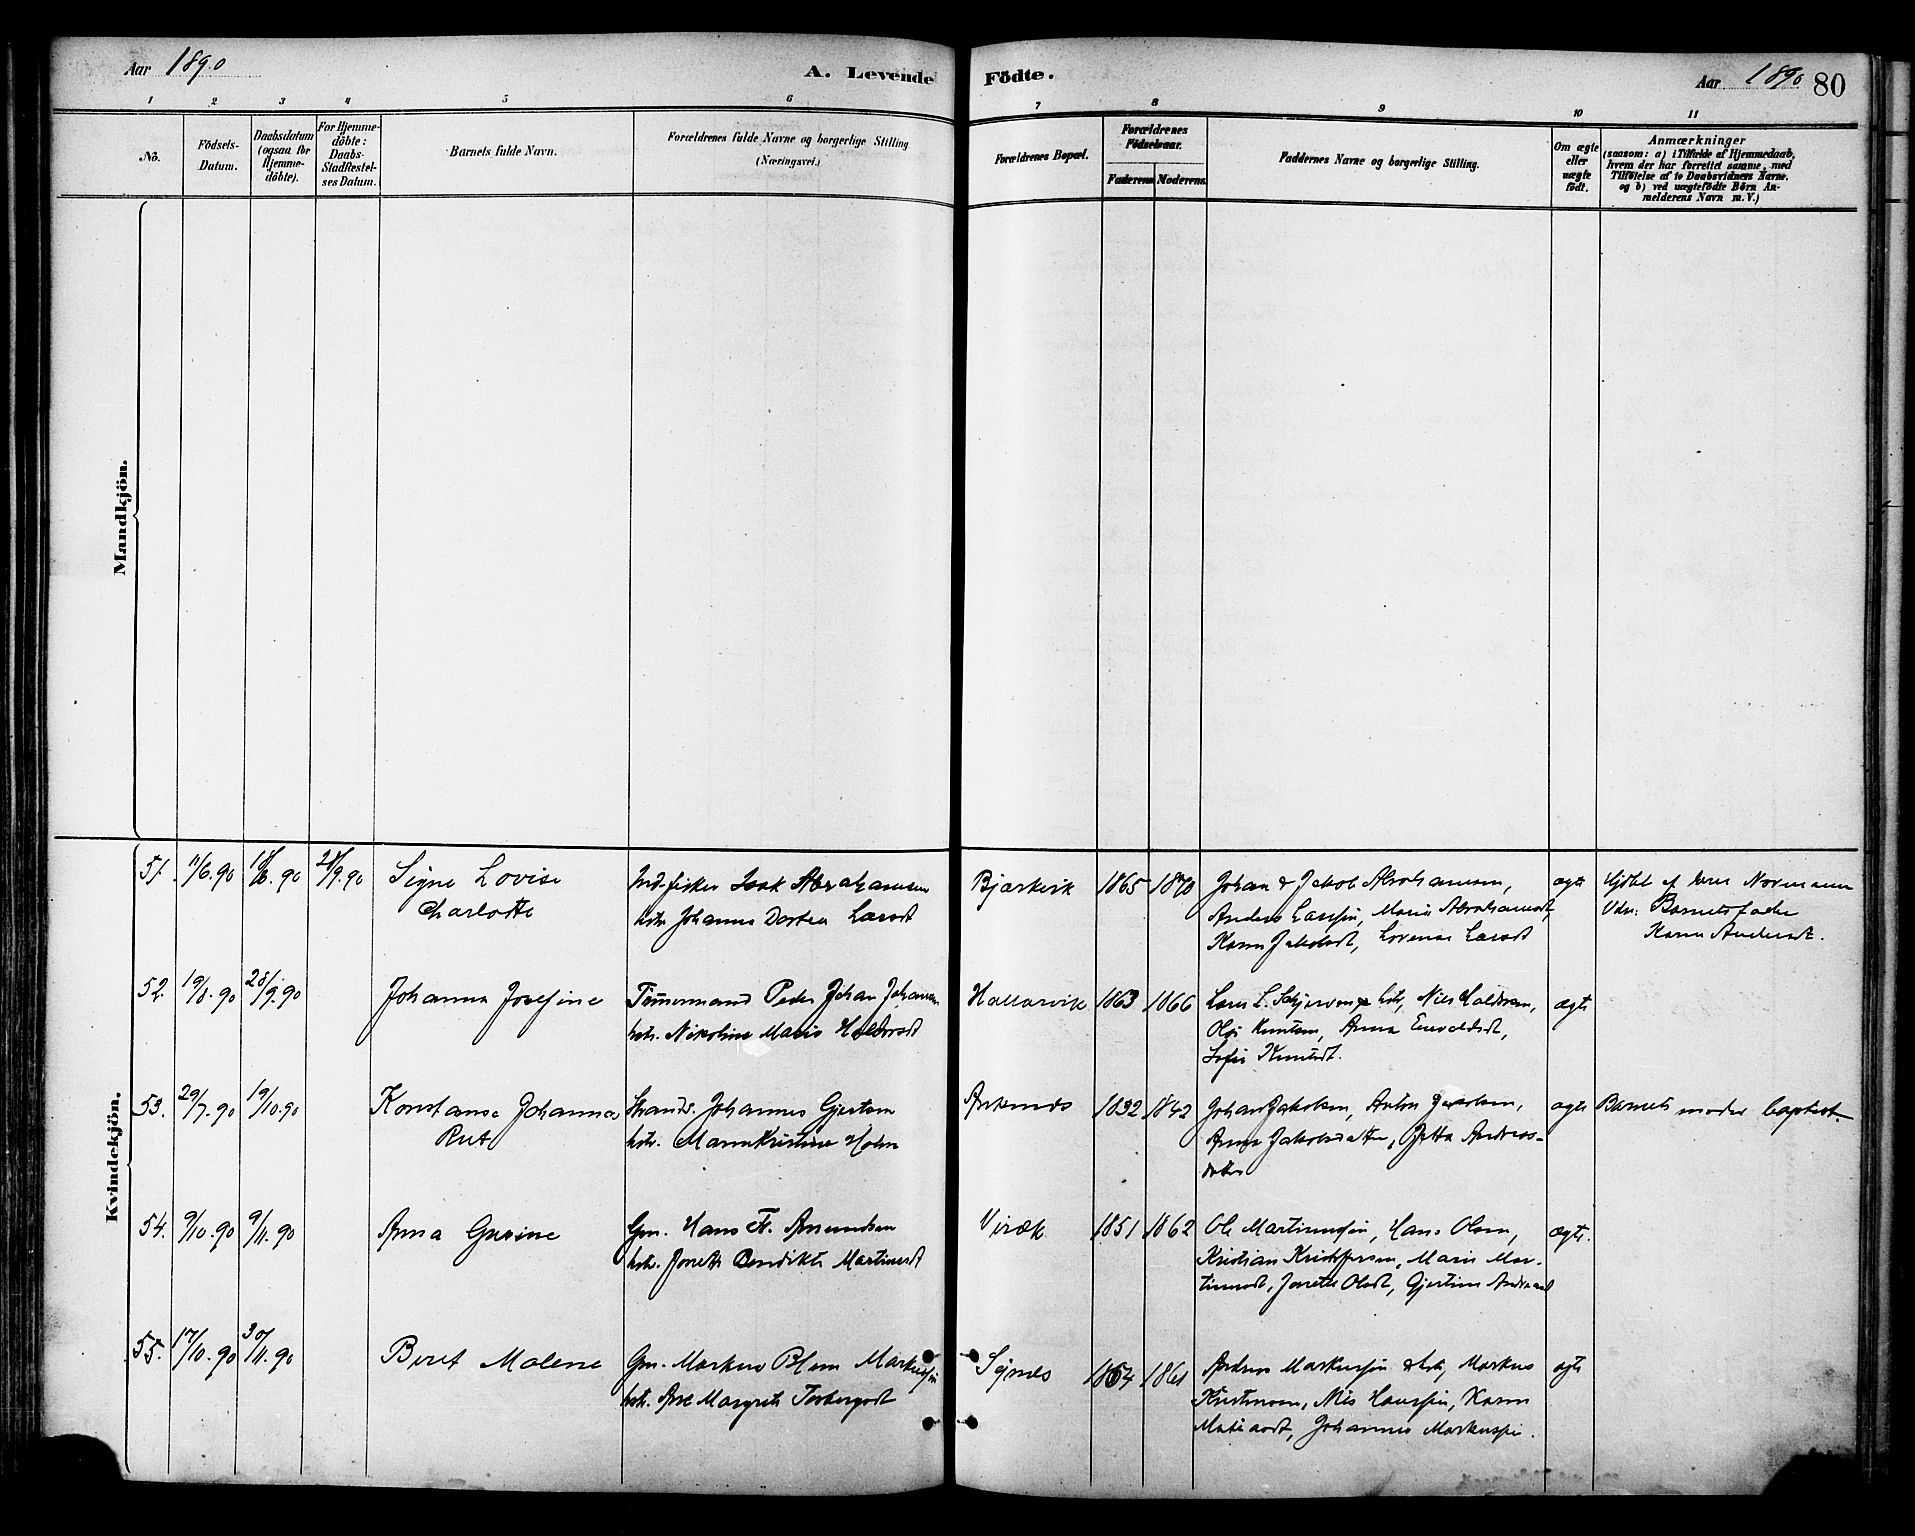 Aar 1890
A. Levende Födte.
Aar 1890 80
1 2 3 4 5 6 7 8 9 10 11
No.
Födsels-
Datum.
Daabsdatum
(ogsaa for
Hjemme-
döbte).
For Hjemme-
döbte:
Daabs-
Stadfæstel-
ses Datum.
Barnets fulde Navn.
Forældrenes fulde Navne og borgerlige Stilling
(Næringsvei.)
Forældrenes Bopæl.
Forældrenes
Födselsaar.
Faderens Moderens
Faddernes Navne og borgerlige Stilling.
Om ægte
eller
uægte
födt.
Anmærkninger
(saasom: a) i Tilfælde af Hjemmedaab,
hvem der har forrettet samme, med
Tilföielse af to Daabsvidners Navne,
og b) ved uægtefödte Börn An-
melderens Navn m.V.)
Mandkjön.
Kvindekjön.
51. 11/6.90 90 9.90
Signe Lovise
Charlotte
Ind. fisker Isak Abrahamsen
hstr. Johanna Dortea Larsdt
Bjerkvik 1865 1870
Johan & Jakob Abrahamsen,
Anders Larssen, Marie Abrahamsdt,
Karen Jakobsdt, Lovense Larsdt
ægte
Hjdbt af Normann
Vdn: Barnets fader
Karen Andersdt.
52. 19/8.90 28/9.90
Johanna Josefine
Tömmermand Peder Johan Johansen
hstr. Nikoline Marie
1863 1866
Lars L. hstr,
Olaf Knutsen, Anna
Sofie
ægte
53. 29/7.90 19/10.90
Konstanse Johanna
Rut
Strands. Johannes Gjertsen
hstr. Maren Kristine Holm
Ankenes 1832 1842
Johan Jakobsen, Anton Jakobsen,
Anna Jakobsdatter, Jetta Andreas-
datter
ægte
Barnets moder baptist.
54. 9/10.90 9/11.90
Anna Gusine
Gm. Hans Fr. Amundsen
hstr. Jonette Bendikte Martinsdt
Viræk 1851 1862
Ole Martinussen, Hans Olsen,
Kristian Kristoffersen, Marie Mar-
tinusdt, Jonette Olsdt, Gjertine
ægte.
55. 17/10.90 30/11.90
Beret Malene
Gm. Markus Blom Markussen
hstr. Ane Margrete Torbergsdt
Synes 1864 1861
Andreas Markussen & hstr, Markus
Kristensen, Nils Hanssen, Karen
Matiasdt, Johannes Markussen.
ægte